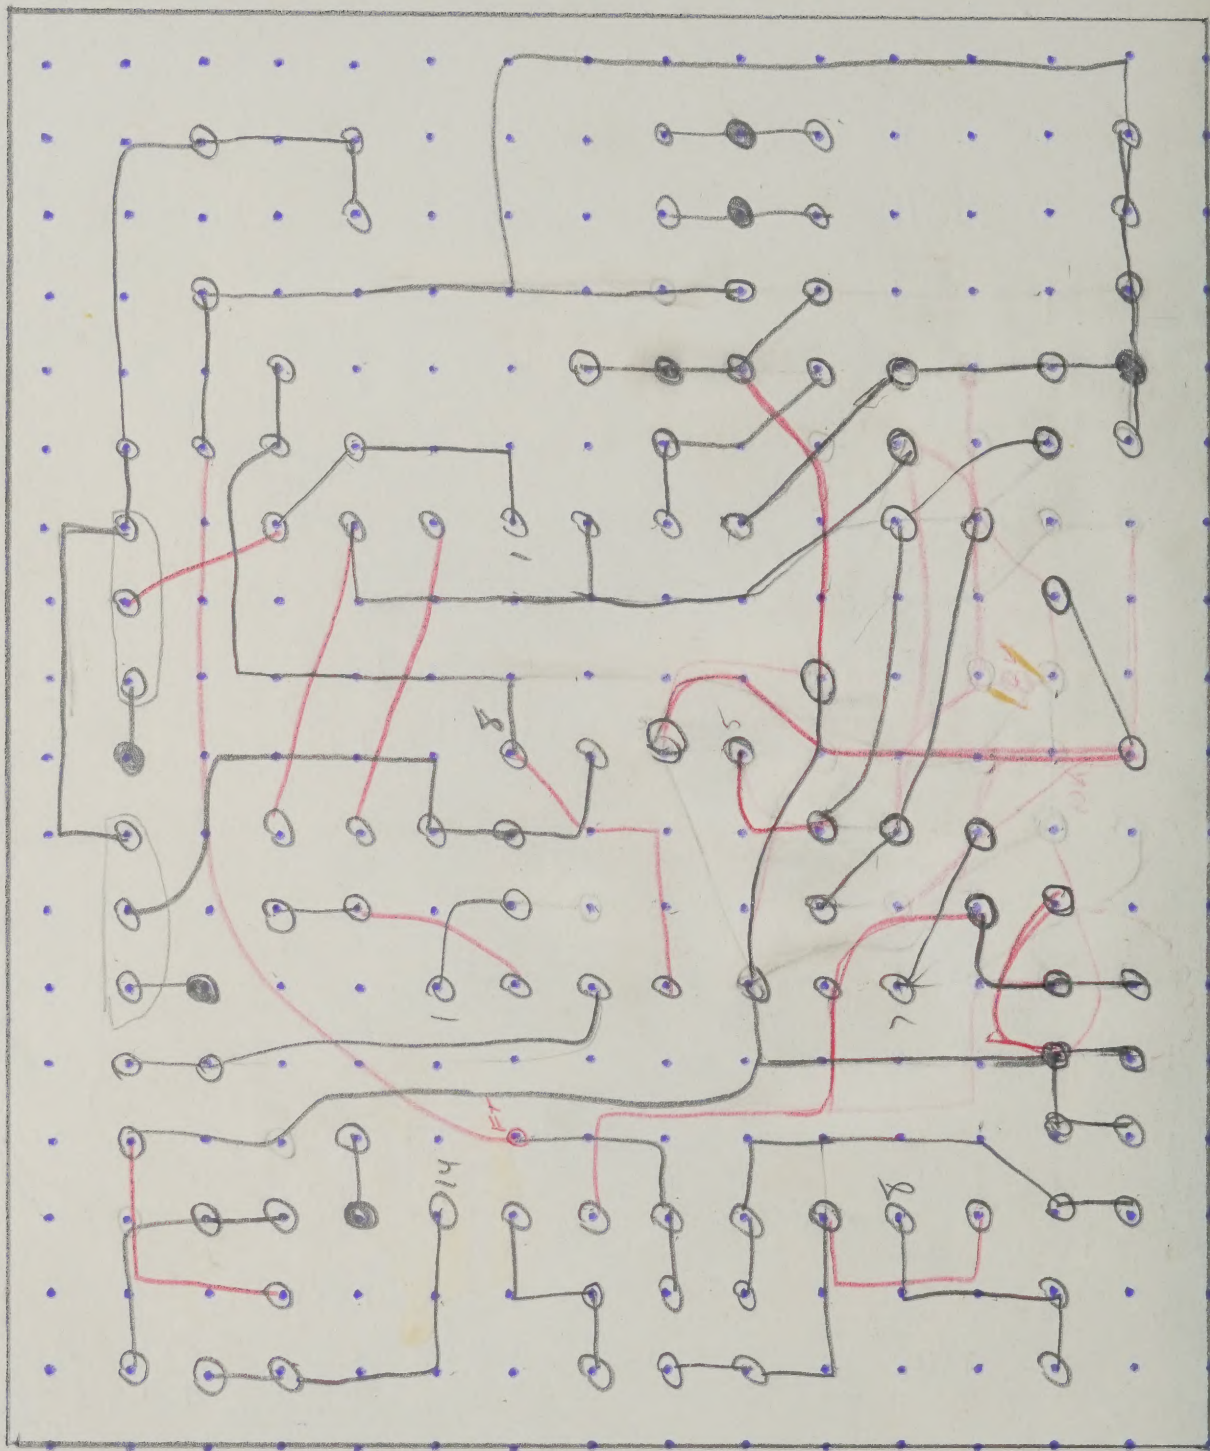 1
8
5
1
7
14
8